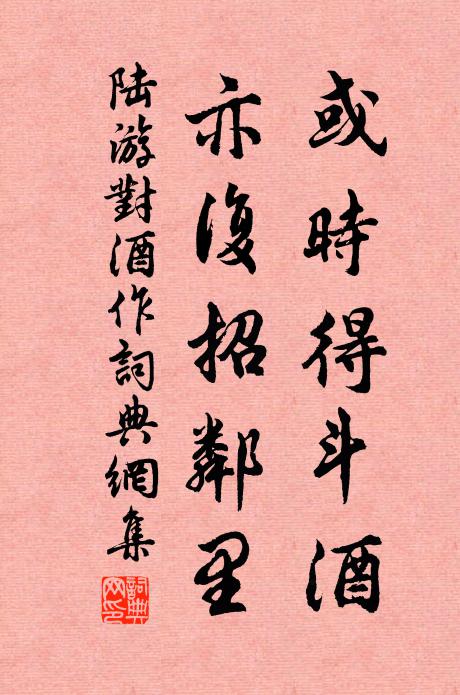 或時得斗酒
亦復招鄰里
陆游對酒作詞典網集
詞典網印